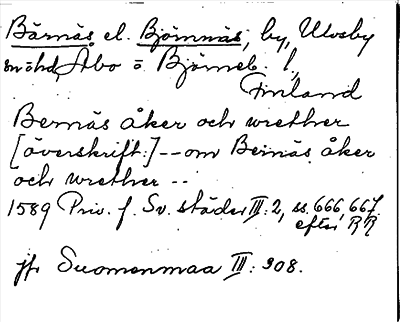 Bärnäs el. Björnnäs, by, Ulvsby
snöhd, Åbo o Björneb. l,
Finland
Bernäs åker och wrether
[överskrift:] -- om Beinäs åker
och wrether --
1589 Priv. f. Sv. städer III:2, ss. 666, 667.
efter RR
jfr Suomenmaa III: 308.